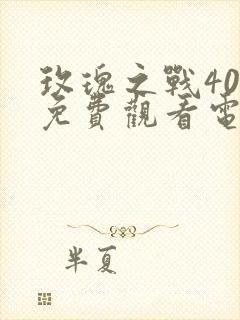 玫瑰之戰40
免費觀看電
半夏